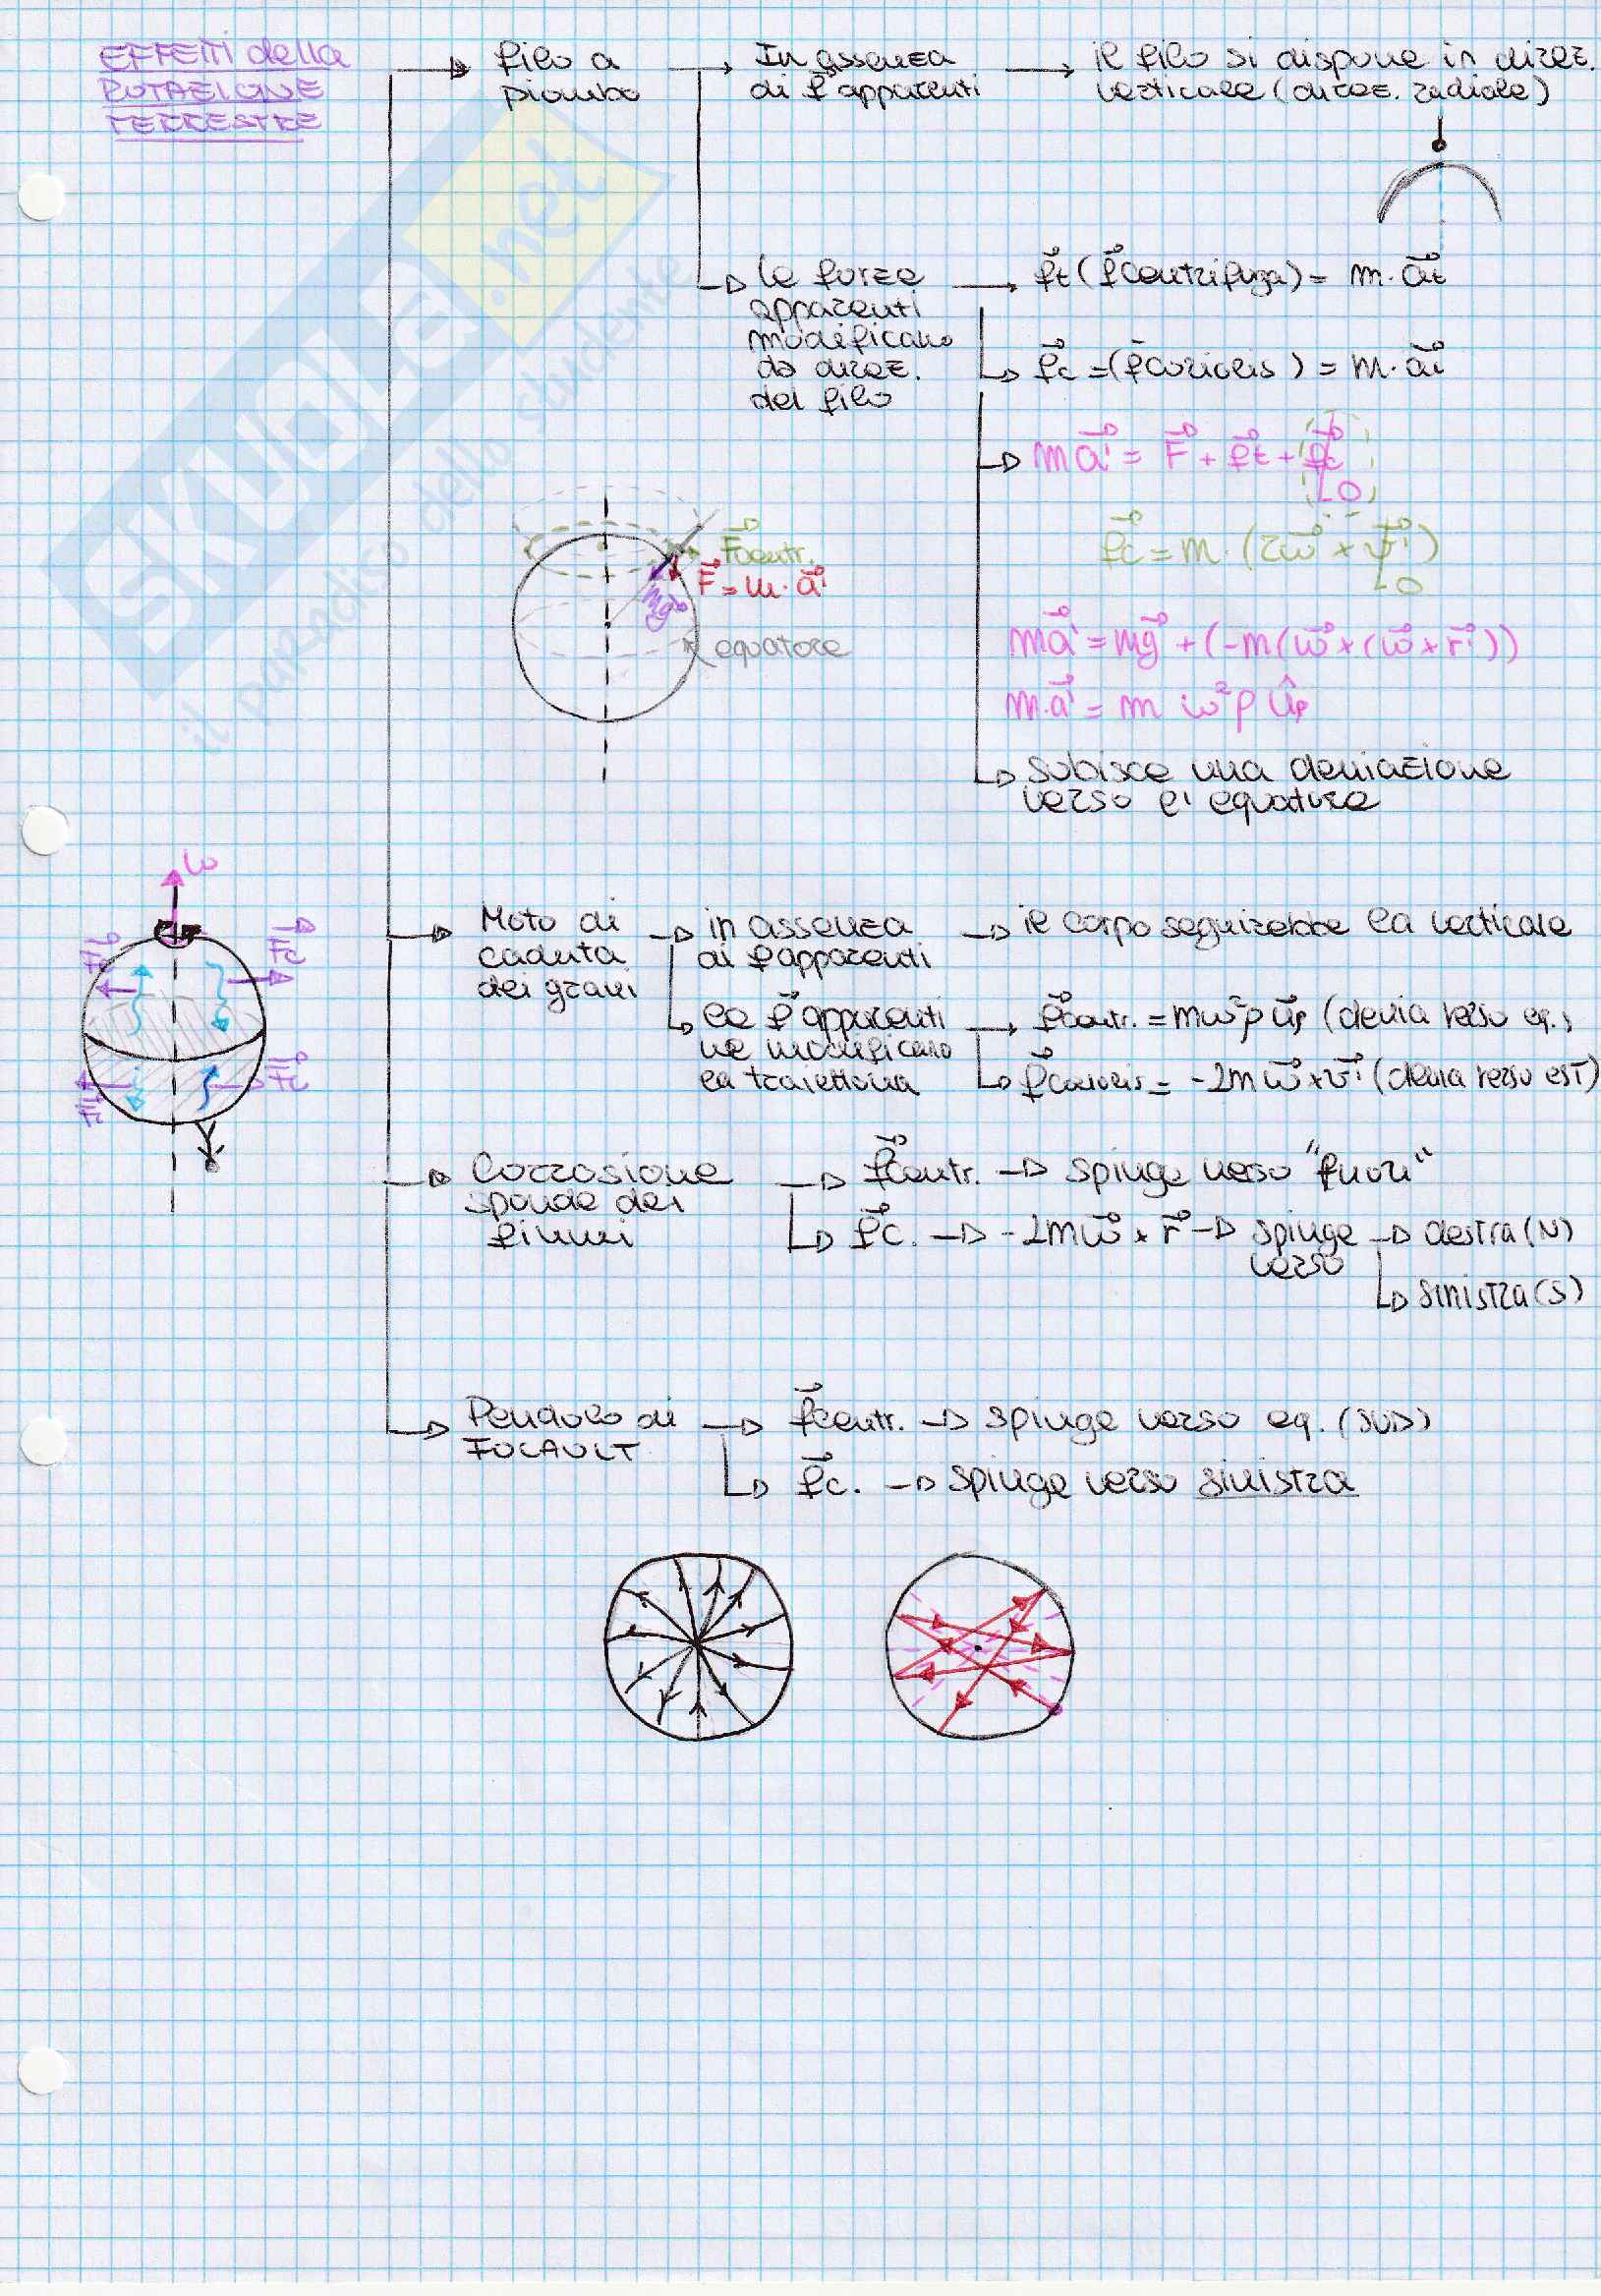 EFFETTI della
ROTAZIONE
TERRESTRE
filo a
piombo
In assenza
di f apparenti
il filo si dispone in direz.
verticale (direz. radiale)
le forze
apparenti
modificano
la direz.
del filo
ft (f centrifuga) = m · at
fc = (f coriolis) = m · ai
ma' = F + ft + fc
0
fc = m · (2ω × v')
0
ma' = mg + (-m(ω × (ω × r'))
m·a' = m ω²ρ ûρ
subisce una deviazione
verso l'equatore
Fcentr.
F = m · a'
mg
equatore
ω
Fc
Fc
Fc
Fc
Moto di
caduta
dei gravi
in assenza
di f apparenti
il corpo seguirebbe la verticale
le f apparenti
ne modificano
la traiettoria
fcentr. = mω²ρ uρ (devia verso eq.)
fcoriolis = -2mω × v' (devia verso EST)
Corrosione
sponde dei
fiumi
fcentr. → spinge verso "fuori"
fc. → -2mω × r → spinge
verso
destra (N)
sinistra (S)
Pendolo di
FOCAULT
fcentr. → spinge verso eq. (SUD)
fc. → spinge verso sinistra
SKUOLA.net
il paradiso dello studente